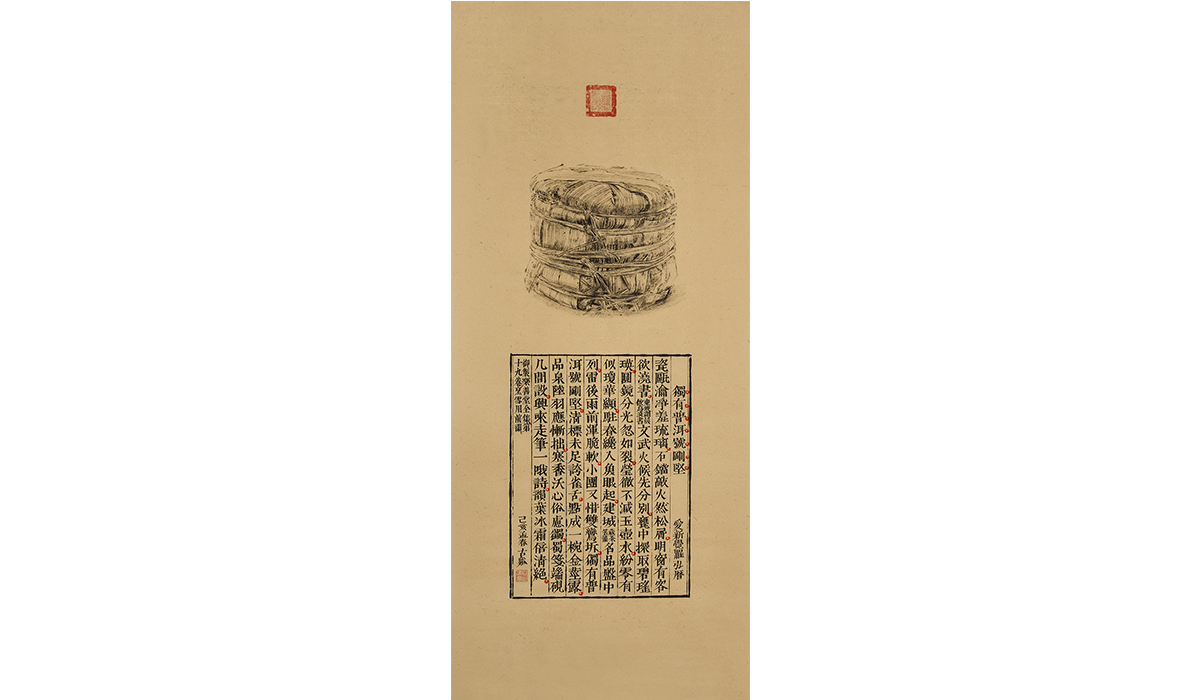 獨有普洱號剛堅
愛新覺羅弘曆
瓷甌瀹淨羞琉璃石鐺敲火然松屑明窗有客
欲澆書文武火候先分別甕中探取碧瑤
瑛圓鏡分光忽如裂瑩徹不減玉壺冰紛零有
似瓊華纈駐春纔入魚眼起建城名品盤中
列雷後雨前渾脆軟小團又惜雙鸞坼獨有普
洱號剛堅清標未足誇雀舌點成一椀金莖露
品泉陸羽應慚拙寒香沃心俗慮蠲蜀箋端硯
几間設興來走筆一哦詩韻葉冰霜倍清絕
御製樂善堂全集第
十九卷烹雪用前韻
己亥孟春